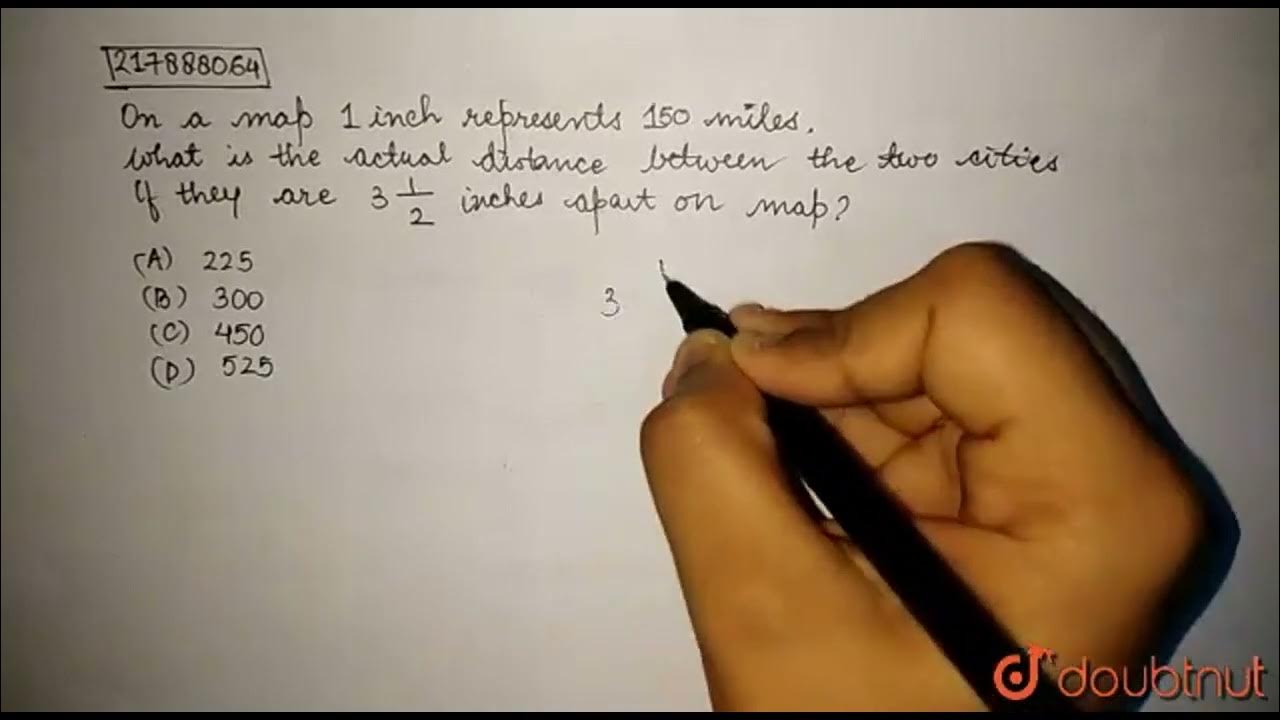 217888064
On a map 1 inch represents 150 miles.
What is the actual distance between the two cities
If they are 3 1/2 inches apart on map?
(A) 225
(B) 300
(C) 450
(D) 525
3
doubtnut